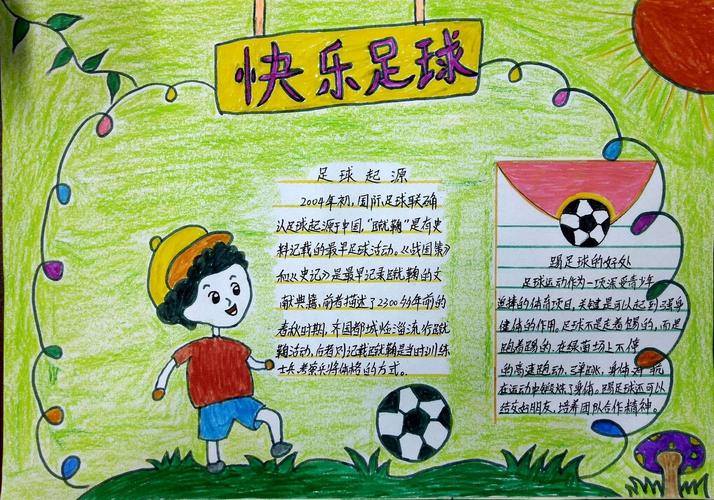 快乐足球
足球起源
2004年初，国际足球联确
认足球起源于中国，"蹴鞠"是有史
料记载的最早足球活动。《战国策》
和《史记》是最早记录蹴鞠的文
献典籍，前者描述了2300多年前的
春秋时期，齐国都城临淄流行蹴
鞠活动，后者则记载蹴鞠是当时训练
士兵、考察兵将体格的方式。
踢足球的好处
足球运动作为一项深受青少年
追捧的体育项目，关键是可以起到强身
健体的作用。足球不是走着踢的，而是
跑着踢的，在绿茵场上不停
的高速跑动、弹跳、身体对抗
在运动中锻炼了身体。踢足球还可以
结交好朋友，培养团队合作精神。